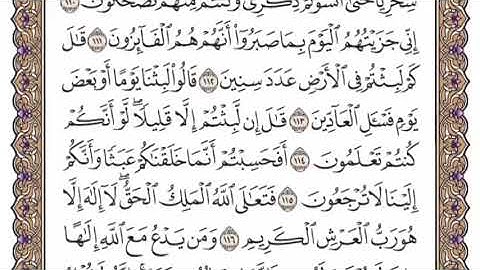 سِخْرِيًّا حَتَّىٰٓ أَنسَوْكُمْ ذِكْرِى وَكُنتُم مِّنْهُمْ تَضْحَكُونَ ١١٠
إِنِّى جَزَيْتُهُمُ ٱلْيَوْمَ بِمَا صَبَرُوٓا۟ أَنَّهُمْ هُمُ ٱلْفَآئِزُونَ ١١١ قَٰلَ
كَمْ لَبِثْتُمْ فِى ٱلْأَرْضِ عَدَدَ سِنِينَ ١١٢ قَالُوا۟ لَبِثْنَا يَوْمًا أَوْ بَعْضَ
يَوْمٍ فَسْـَٔلِ ٱلْعَآدِّينَ ١١٣ قَٰلَ إِن لَّبِثْتُمْ إِلَّا قَلِيلًا ۖ لَّوْ أَنَّكُمْ
كُنتُمْ تَعْلَمُونَ ١١٤ أَفَحَسِبْتُمْ أَنَّمَا خَلَقْنَٰكُمْ عَبَثًا وَأَنَّكُمْ
إِلَيْنَا لَا تُرْجَعُونَ ١١٥ فَتَعَٰلَى ٱللَّهُ ٱلْمَلِكُ ٱلْحَقُّ ۖ لَآ إِلَٰهَ إِلَّا
هُوَ رَبُّ ٱلْعَرْشِ ٱلْكَرِيمِ ١١٦ وَمَن يَدْعُ مَعَ ٱللَّهِ إِلَٰهًا